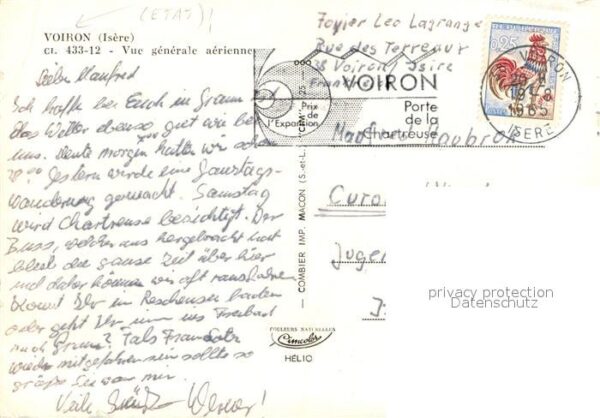 (ETAT)!
VOIRON (Isère)
Cl. 433-12 - Vue générale aérienne
Foyier Leo Lagrange
Rue des Terreaux
38 Voiron, Isire
Frankreich
VOIRON
Prix
de
l'Expansion
Porte
de la
Chartreuse
0,25
VOIRON
1965
ISERE
Lieber Manfred
Ich hoffe bei Euch in
das Wetter ebenso gut wie bei
uns. Heute morgen hatten wir schon
28°° Gestern wurde eine Ganztags-
wanderung gemacht. Samstag
wird Chartreuse besichtigt. Der
Buss, welcher uns hergebracht hat
bleibt die ganze Zeit über hier
und daher können wir oft rausfahren
Kommt Ihr in baden
oder geht Ihr ins Freibad
nach Falls
wieder mitgefahren sein sollte so
grüße Sie von mir.
Viele Grüße
Manfred
Jugen
— COMBIER IMP. MACON (S.-et-L.) "CIM"
COULEURS NATURELLES
Cimcolor
HÉLIO
privacy protection
Datenschutz